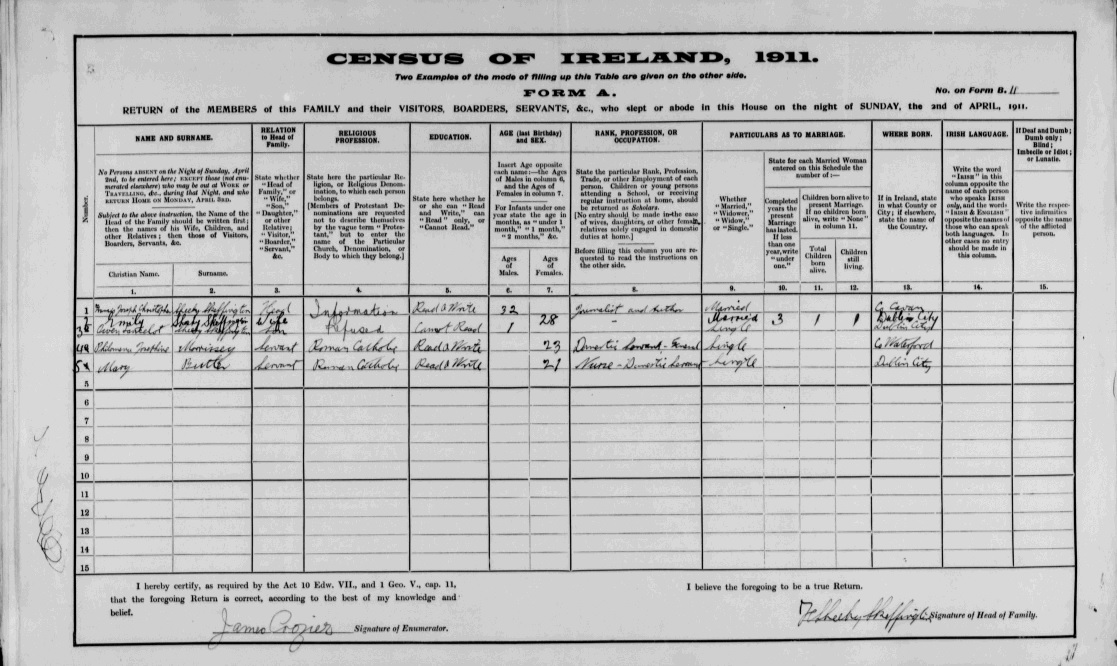 CENSUS OF IRELAND, 1911.
Two Examples of the mode of filling up this Table are given on the other side.
FORM A.
No. on Form B. 11
RETURN of the MEMBERS of this FAMILY and their VISITORS, BOARDERS, SERVANTS, &c., who slept or abode in this House on the night of SUNDAY, the 2nd of APRIL, 1911.
Number.
NAME AND SURNAME.
No Persons ABSENT on the Night of Sunday, April 2nd, to be entered here; EXCEPT those (not enumerated elsewhere) who may be out at WORK or TRAVELLING, &c., during that Night, and who RETURN HOME ON MONDAY, APRIL 3RD.
Subject to the above instruction, the Name of the Head of the Family should be written first; then the names of his Wife, Children, and other Relatives; then those of Visitors, Boarders, Servants, &c.
Christian Name.
Surname.
RELATION to Head of Family.
State whether "Head of Family," or "Wife," "Son," "Daughter," or other Relative; "Visitor," "Boarder," "Servant," &c.
RELIGIOUS PROFESSION.
State here the particular Religion, or Religious Denomination, to which each person belongs.
[Members of Protestant Denominations are requested not to describe themselves by the vague term "Protestant," but to enter the name of the Particular Church, Denomination, or Body to which they belong.]
EDUCATION.
State here whether he or she can "Read and Write," can "Read" only, or "Cannot Read."
AGE (last Birthday) and SEX.
Insert Age opposite each name:—the Ages of Males in column 6, and the Ages of Females in column 7.
For Infants under one year state the age in months, as "under 1 month," "1 month," "2 months," &c.
Ages of Males.
Ages of Females.
RANK, PROFESSION, OR OCCUPATION.
State the particular Rank, Profession, Trade, or other Employment of each person. Children or young persons attending a School, or receiving regular instruction at home, should be returned as Scholars.
[No entry should be made in the case of wives, daughters, or other female relatives solely engaged in domestic duties at home.]
Before filling this column you are requested to read the instructions on the other side.
PARTICULARS AS TO MARRIAGE.
Whether "Married," "Widower," "Widow," or "Single."
State for each Married Woman entered on this Schedule the number of:—
Completed years the present Marriage has lasted. If less than one year, write "under one."
Children born alive to present Marriage. If no children born alive, write "None" in column 11.
Total Children born alive.
Children still living.
WHERE BORN.
If in Ireland, state in what County or City; if elsewhere, state the name of the Country.
IRISH LANGUAGE.
Write the word "IRISH" in this column opposite the name of each person who speaks IRISH only, and the words "IRISH & ENGLISH" opposite the names of those who can speak both languages. In other cases no entry should be made in this column.
If Deaf and Dumb; Dumb only; Blind; Imbecile or Idiot; or Lunatic.
Write the respective infirmities opposite the name of the afflicted person.
1. 2. 3. 4. 5. 6. 7. 8. 9. 10. 11. 12. 13. 14. 15.
1 Francis Joseph Christopher Sheehy Skeffington Head Information Read & Write 32 Journalist and Author Married Co Cavan
2 Emily Sheehy Skeffington Wife 28 – Married 3 1 1 Dublin City
3 Owen Lancelot Sheehy Skeffington Son Refused Cannot Read 1 Single Dublin City
4 Philomena Josephine Morrissey Servant Roman Catholic Read & Write 23 Domestic Servant - General Single Co Waterford
5 Mary Butler Servant Roman Catholic Read & Write 21 Nurse - Domestic Servant Single Dublin City
5
6
7
8
9
10
11
12
13
14
15
I hereby certify, as required by the Act 10 Edw. VII., and 1 Geo. V., cap. 11,
that the foregoing Return is correct, according to the best of my knowledge and
belief.
James Crozier Signature of Enumerator.
I believe the foregoing to be a true Return.
F Sheehy Skeffington Signature of Head of Family.